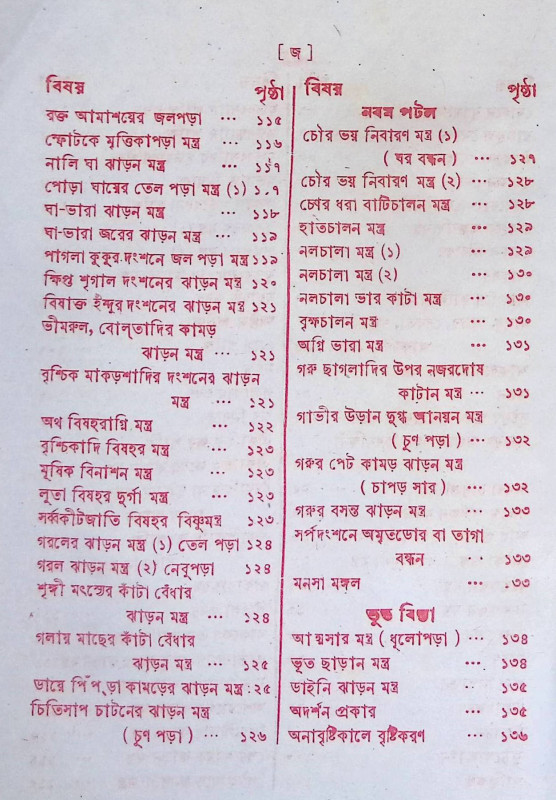 [ জ ]
বিষয় পৃষ্ঠা
রক্ত আমাশয়ের জলপড়া ··· ১১৫
স্ফোটকে মৃত্তিকাপড়া মন্ত্র ··· ১১৬
নালি ঘা ঝাড়ন মন্ত্র ১১৭
পোড়া ঘায়ের তেল পড়া মন্ত্র (১)
ঘা-ভারা ঝাড়ন মন্ত্র ··· ১১৮
ঘা-ভারা জরের ঝাড়ন মন্ত্র ··· ১১৯
পাগলা কুকুর দংশনে জল পড়া মন্ত্র ১১৯
ক্ষিপ্ত শৃগাল দংশনের ঝাড়ন মন্ত্র ১২০
বিষাক্ত ইঁদুর দংশনের ঝাড়ন মন্ত্র ১২১
ভীমরুল, বোল্‌তাদির কামড়
ঝাড়ন মন্ত্র ··· ১২১
বৃশ্চিক মাকড়শাদির দংশনের ঝাড়ন
মন্ত্র ··· ১২১
অথ বিষহরাগ্নি মন্ত্র ··· ১২২
বৃশ্চিকাদি বিষহর মন্ত্র ··· ১২৩
মূষিক বিনাশন মন্ত্র ··· ১২৩
লূতা বিষহর দুর্গা মন্ত্র ··· ১২৩
সর্ব্বকীটজাতি বিষহর বিষ্ণুমন্ত্র ১২৩
গরলের ঝাড়ন মন্ত্র (১) তেল পড়া ১২৪
গরল ঝাড়ন মন্ত্র (২) নেবুপড়া ১২৪
শৃঙ্গী মৎস্যের কাঁটা বেঁধার
ঝাড়ন মন্ত্র ··· ১২৪
গলায় মাছের কাঁটা বেঁধার
ঝাড়ন মন্ত্র ··· ১২৫
ডায়ে পিঁপড়া কামড়ের ঝাড়ন মন্ত্র ১২৫
চিতিসাপ চাটনের ঝাড়ন মন্ত্র
( চুণ পড়া ) ··· ১২৬
বিষয় পৃষ্ঠা
নবম পটল
চৌর ভয় নিবারণ মন্ত্র (১)
( ঘর বন্ধন ) ··· ১২৭
চৌর ভয় নিবারণ মন্ত্র (২) ··· ১২৮
চোর ধরা বাটিচালন মন্ত্র ··· ১২৮
হাতচালন মন্ত্র ··· ১২৯
নলচালা মন্ত্র (১) ··· ১২৯
নলচালা মন্ত্র (২) ··· ১৩০
নলচালা ভার কাটা মন্ত্র ··· ১৩০
বৃক্ষচালন মন্ত্র ··· ১৩০
অগ্নি ভারা মন্ত্র ··· ১৩১
গরু ছাগলাদির উপর নজরদোষ
কাটান মন্ত্র ··· ১৩১
গাভীর উড়ান দুগ্ধ আনয়ন মন্ত্র
( চুণ পড়া ) ··· ১৩২
গরুর পেট কামড় ঝাড়ন মন্ত্র
( চাপড় সার ) ··· ১৩২
গরুর বসন্ত ঝাড়ন মন্ত্র ··· ১৩৩
সর্পদংশনে অমৃতডোর বা তাগা
বন্ধন ··· ১৩৩
মনসা মঙ্গল ··· ১৩৩
ভূত বিদ্যা
আত্মসার মন্ত্র ( ধূলোপড়া ) ··· ১৩৪
ভূত ছাড়ান মন্ত্র ··· ১৩৪
ডাইনি ঝাড়ন মন্ত্র ·· ১৩৫
অদর্শন প্রকার ··· ১৩৫
অনাবৃষ্টিকালে বৃষ্টিকরণ ··· ১৩৬